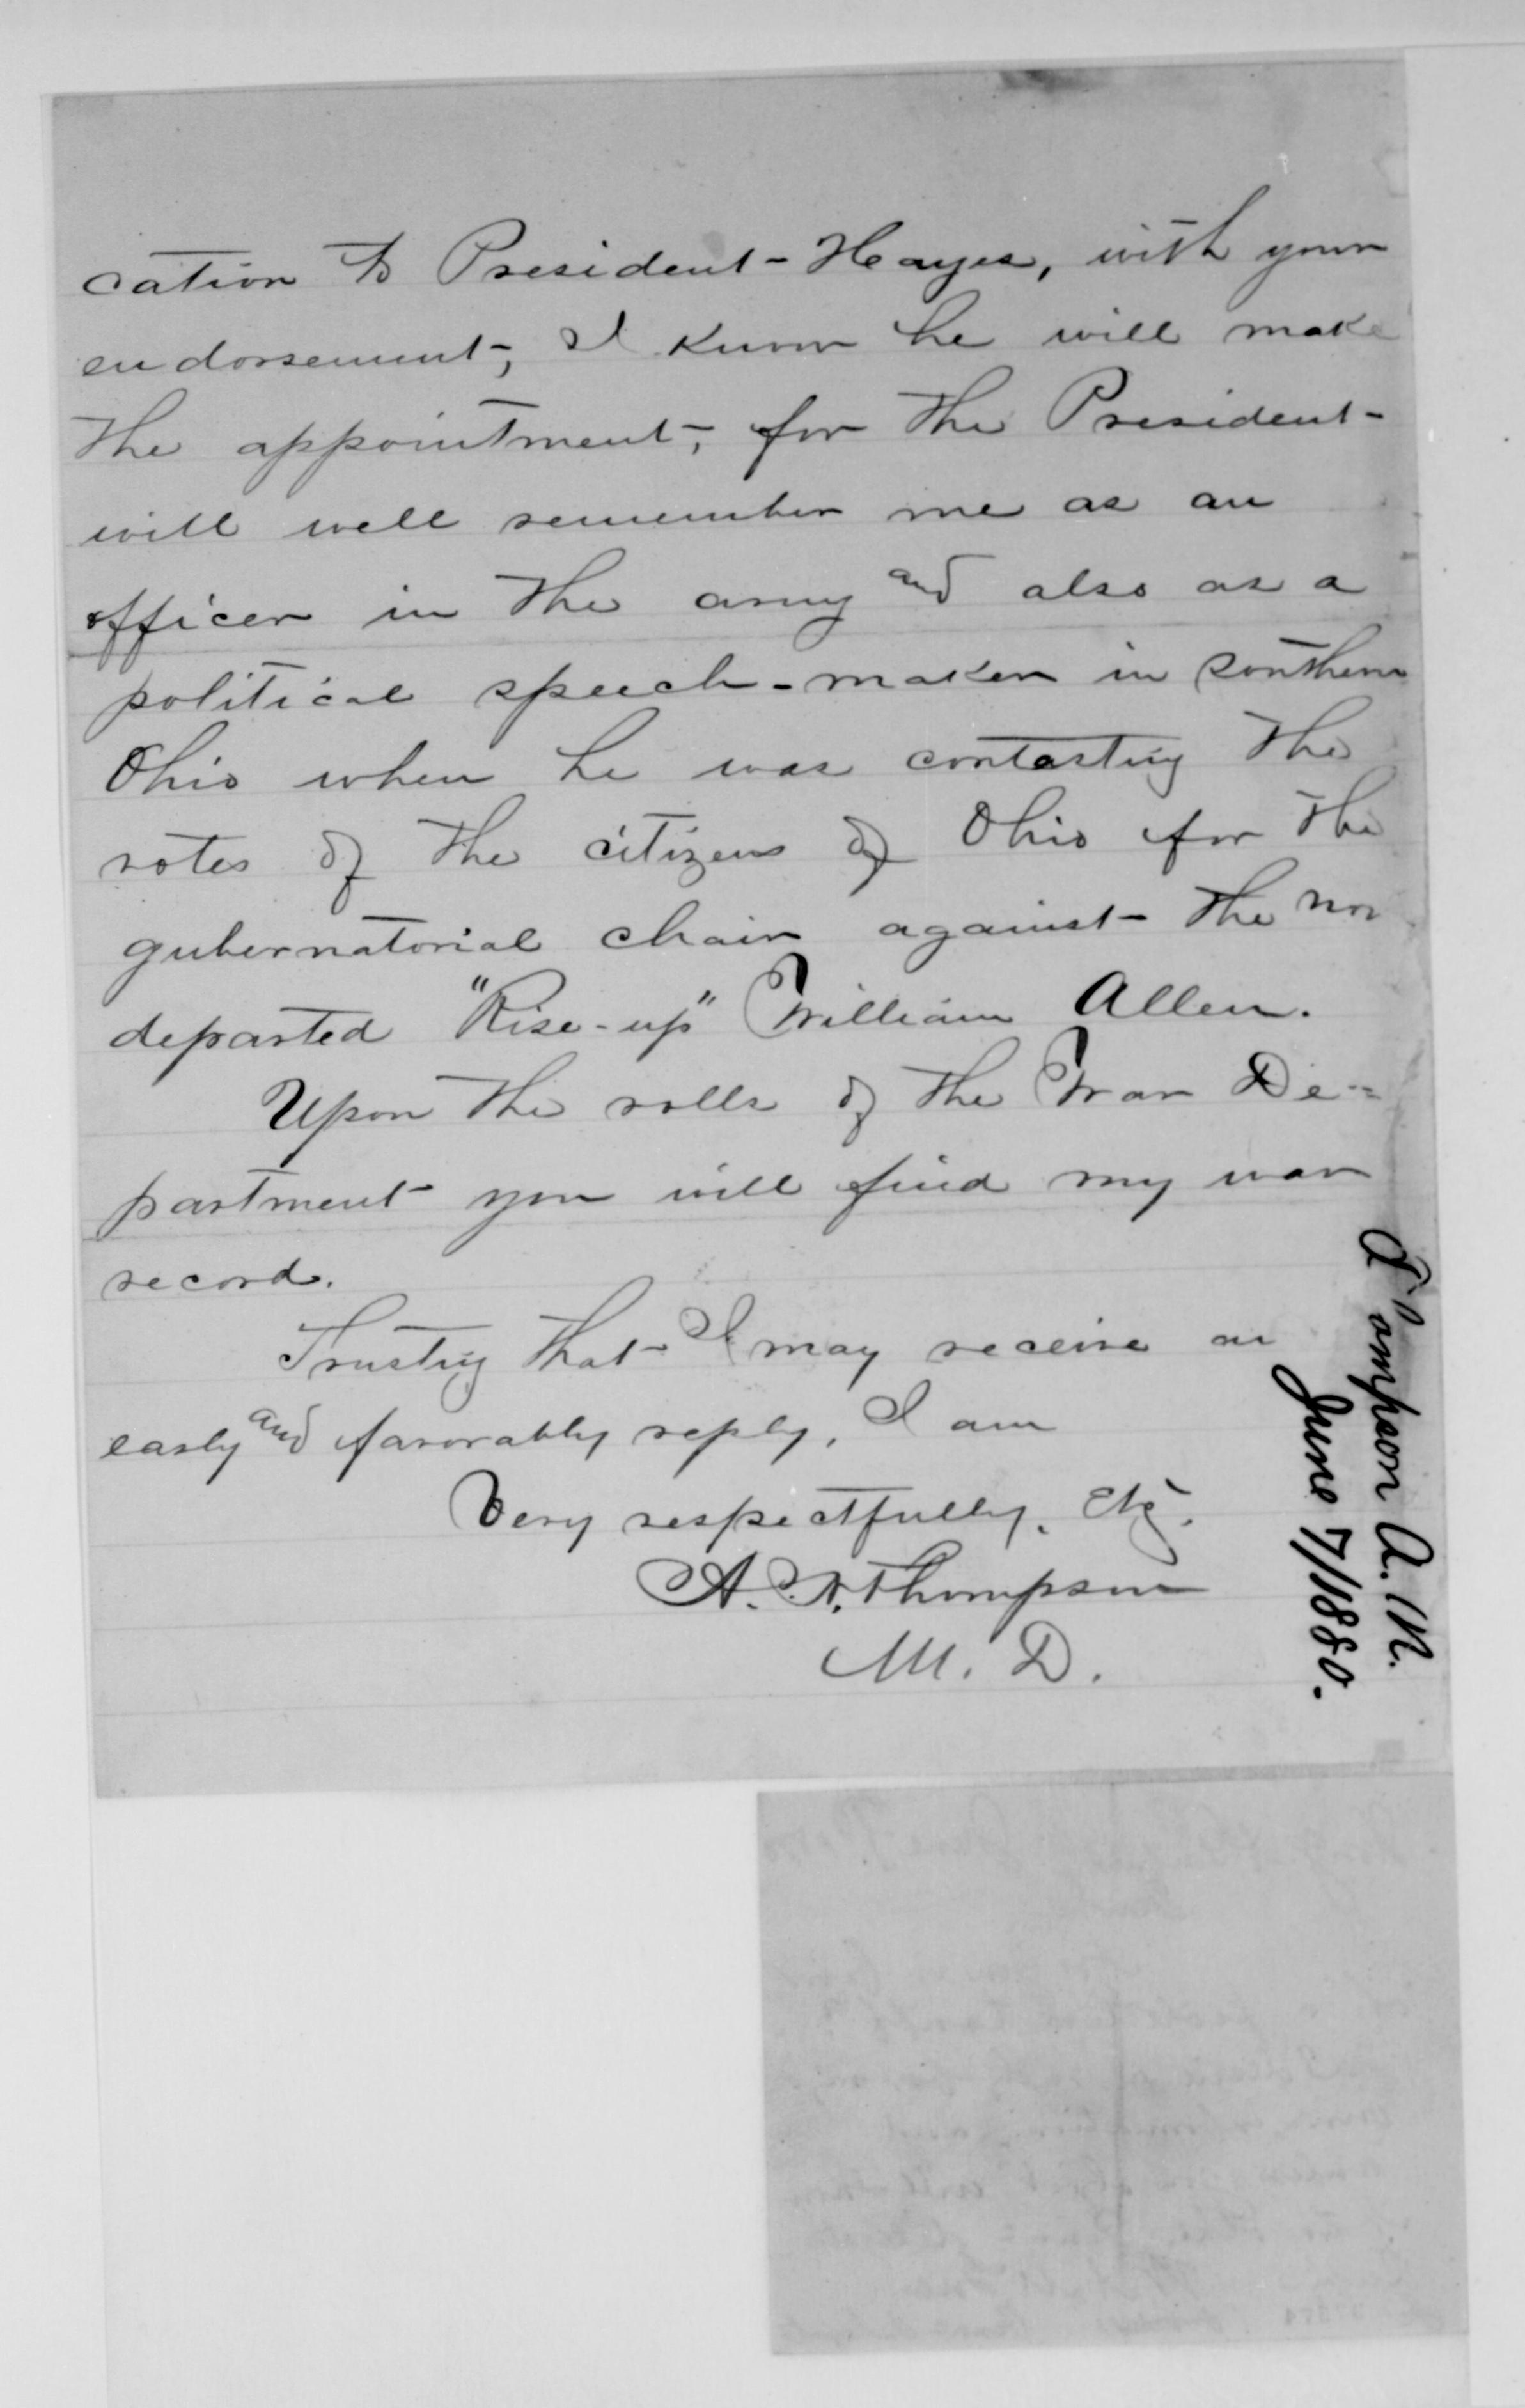 cation to President-Hayes, with your
endorsement, I know he will make
the appointment, for the President
will well remember me as an
officer in the army and also as a
political speech-maker in southern
Ohio when he was contesting the
votes of the citizens of Ohio for the
gubernatorial chair against the now
departed "Rise-up" William Allen.
Upon the rolls of the War De-
partment you will find my war
record.
Trusting that I may receive an
early and favorably reply, I am
Very respectfully, Etc.
A. N. Thompson
M. D.
Thompson A. N.
June 7/1880.